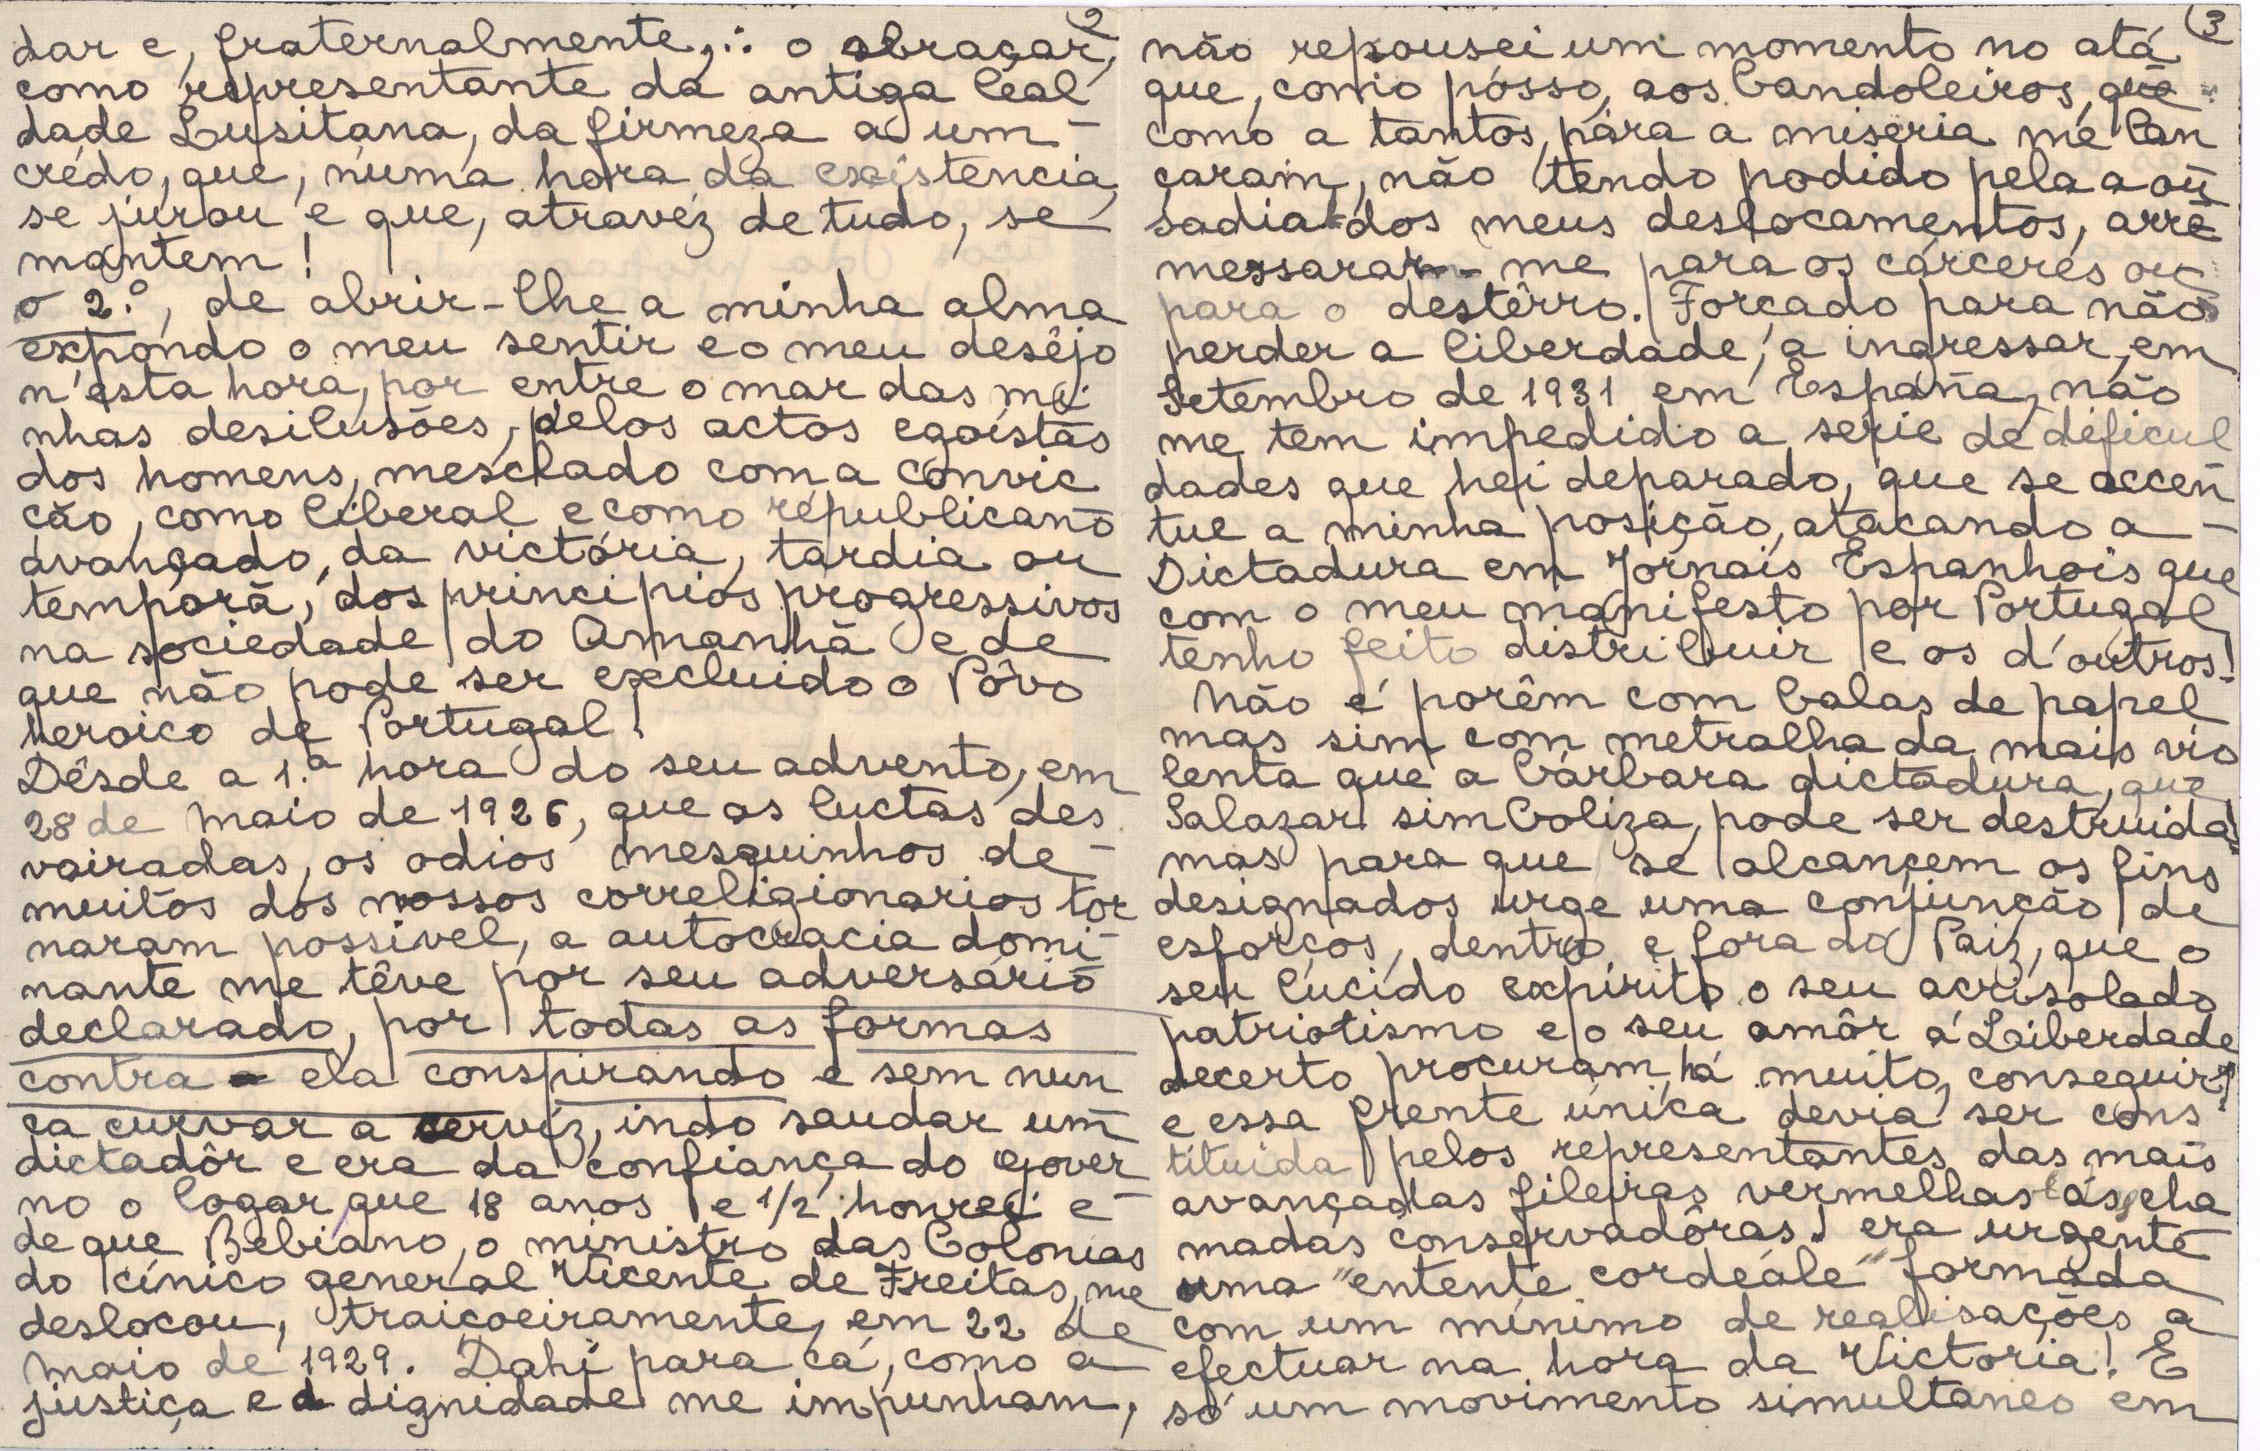 2
dar e, fraternalmente, ∴ o abraçar,
como representante da antiga leal
dade Lusitana, da firmeza a um-
crédo, que, numa hora da existencia,
se jurou e que, atravéz de tudo, se
mantem!
o 2.º, de abrir-lhe a minha alma
expondo o meu sentir e o meu desêjo
n'esta hora, por entre o mar das mi
nhas desilusões, pelos actos egoístas
dos homens, mesclado com a convic
cão, como liberal e como républicano
avançado, da victória, tardia ou
temporã, dos principios progressivos
na sociedade do Amanhã e de
que não pode ser excluido o Pôvo
heroico de Portugal!
Dêsde a 1.ª hora do seu advento, em
28 de Maio de 1926, que as luctas des
vairadas, os odios mesquinhos de-
muitos dos nossos correligionarios tor
naram possivel, a autocracia domi-
nante me têve por seu adversário
declarado, por todas as formas
contra ela conspirando e sem nun
ca curvar a cerviz, indo saudar um
dictadôr e era da confiança do Gover
no o logar que 18 anos e 1/2 honrei e-
de que Bebiano, o ministro das Colonias
do cínico general Vicente de Freitas, me
deslocou, traiçoeiramente, em 22 de
Maio de 1929. Dahi para cá, como a
justiça e a dignidade me impunham,
3
não repousei um momento no atá
que, como pósso, aos bandoleiros, que
como a tantos, pára a miseria me lan
çaram, não tendo podido pela a ou
sadia dos meus deslocamentos, arre
messaram-me para os cárceres ou
para o destêrro. Forçado para não
perder a liberdade, a ingressar, em
Setembro de 1931 em España, não
me tem impedido a serie de dificul
dades que hei deparado, que se accen
tue a minha posição, atacando a-
Dictadura em Jornais Espanhois que
com o meu manifesto por Portugal
tenho feito distribuir e os d'outros!
Não é porêm com balas de papel
mas sim com metralha da mais vio
lenta que a bárbara dictadura, que
Salazar simboliza, pode ser destruida!
mas para que se alcançem os fins
designados urge uma conjunção de
esforços, dentro e fora do Paiz, que o
seu lúcido expírito o seu acrisolado
patriotismo e o seu amôr á Liberdade
decerto procuram, há muito, conseguir!
e essa frente única devia ser cons
tituida pelos representantes das mais
avançadas fileiras vermelhas ás cha
madas conservadôras! era urgente
uma "entente cordeále" formada
com um mínimo de realisações a
efectuar na hora da Victoria! E
só um movimento simultaneo em